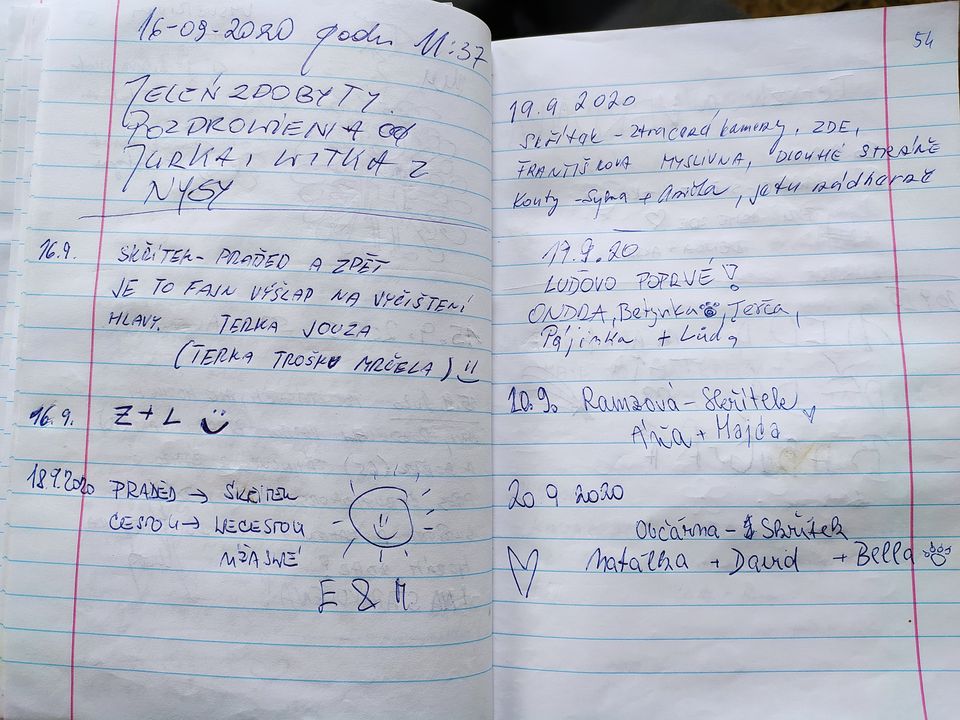 16-09-2020 godz. 11:37
JELEŃ ZDOBYTY.
POZDROWIENIA od
JURKA, WITKA Z
NYSY
16.9. SKŘÍTEK - PRADĚD A ZPĚT
JE TO FAJN VÝŠLAP NA VYČIŠTĚNÍ
HLAVY. TERKA JOUZA
(TERKA TROŠKU MRČELA)
16.9. Z + L
18.9.2020 PRADĚD → SKŘÍTEK
CESTOU → NECESTOU
ÚŽASNÉ
E & M
54
19.9 2020
Skřítek - Ztracené kameny, ZDE,
FRANTIŠKOVA MYSLIVNA, DLOUHÉ STRÁNĚ
Kouty - + , je tu nádherně
17.9.20
LUĎOVO POPRVÉ!
ONDRA, Betynka, Terča,
Pájinka + Luďa
10.9. Ramzová - Skřítek
+ Majda
20 9 2020
Ovčárna - Skřítek
Natálka + David + Bella